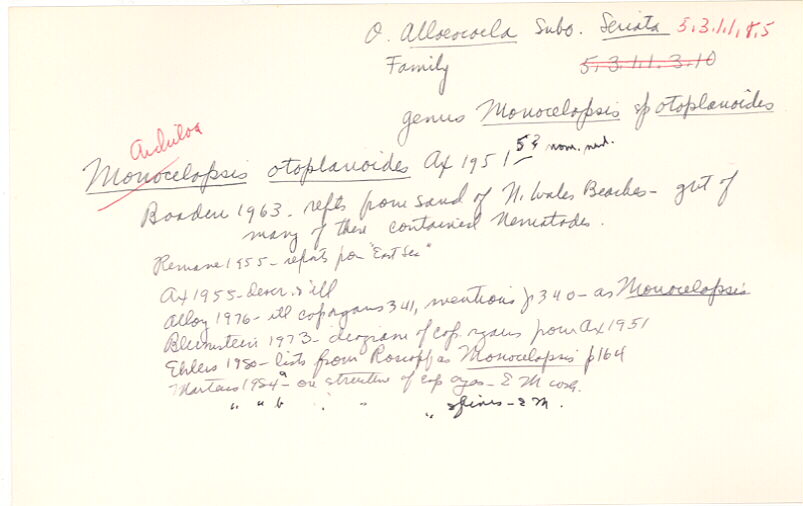 O. Alloeocoela Subo. Seriata 5.3.1.1.8.5
Family 5.3.1.1.3.10
genus Monocelopsis sp otoplanoides
Archiloa
Monocelopsis otoplanoides Ax 1951 53 nom. nud.
Boaden 1963. repts from sand of N. Wales Beaches - gut of
many of these contained Nematodes.
Remane 1955 - reports for "East Sea"
Ax 1955 - descr. & ill
Alloy 1976 - ill cop organs 341, mentions p340 - as Monocelopsis
1973 - diagram of cop. organs from Ax 1951
Ehlers 1980 - lists from Roscoff as Monocelopsis p164
Martens 1984a - on structure of cop orgs - E M
" " b " " " spines - E M.